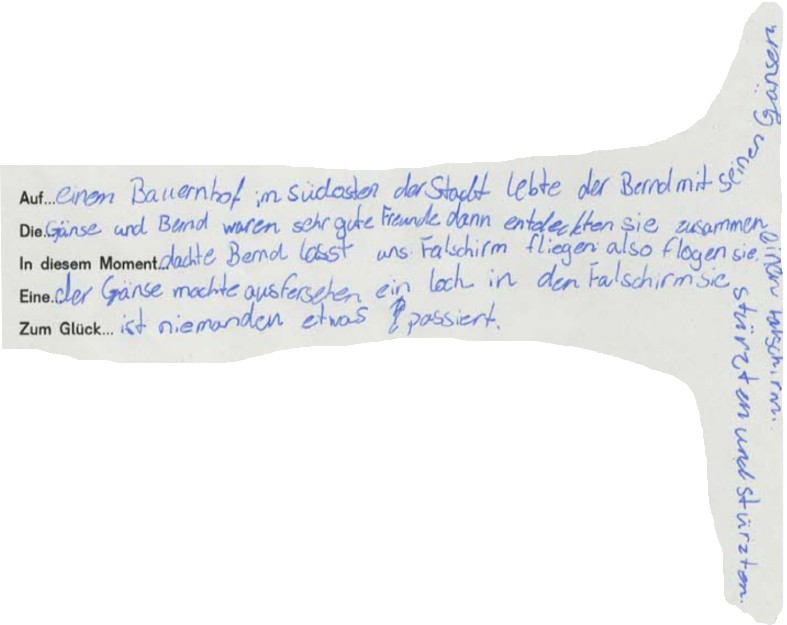 Auf...einem Bauernhof im südosten der Stadt lebte der Bernd mit seinen Gänsen
Die.Gänse und Bernd waren sehr gute Freunde dann entdeckten sie zusammen einen Falschirm.
In diesem Moment...dachte Bernd lasst uns Falschirm fliegen also flogen sie.
Eine.der Gänse machte ausfersehen ein Loch in den Falschirm sie stürzten und stürzten.
Zum Glück... ist niemanden etwas passiert.